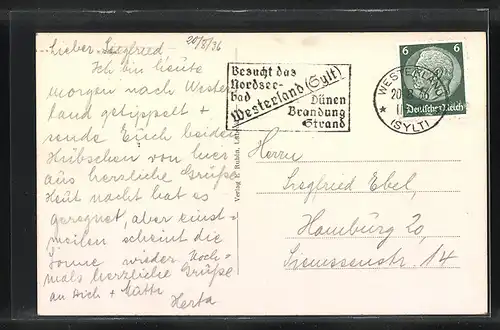 20/8/36
Lieber Siegfried -
Ich bin heute
morgen nach Wester
land getippelt +
sende Euch beiden
Hübschen von hier
aus herzliche Grüße
Heut nacht hat es
geregnet, aber einst-
weilen scheint die
Sonne wieder. Noch-
mals herzliche Grüße
an Dich + Mutti
Herta
Besucht das
Nordsee-
bad
Westerland (Sylt)
Dünen
Brandung
Strand
WESTERLAND
(SYLT)
6 6
Deutsches Reich
Verlag
Herrn
Siegfried Ebel,
Hamburg 20,
Siemssenstr. 14